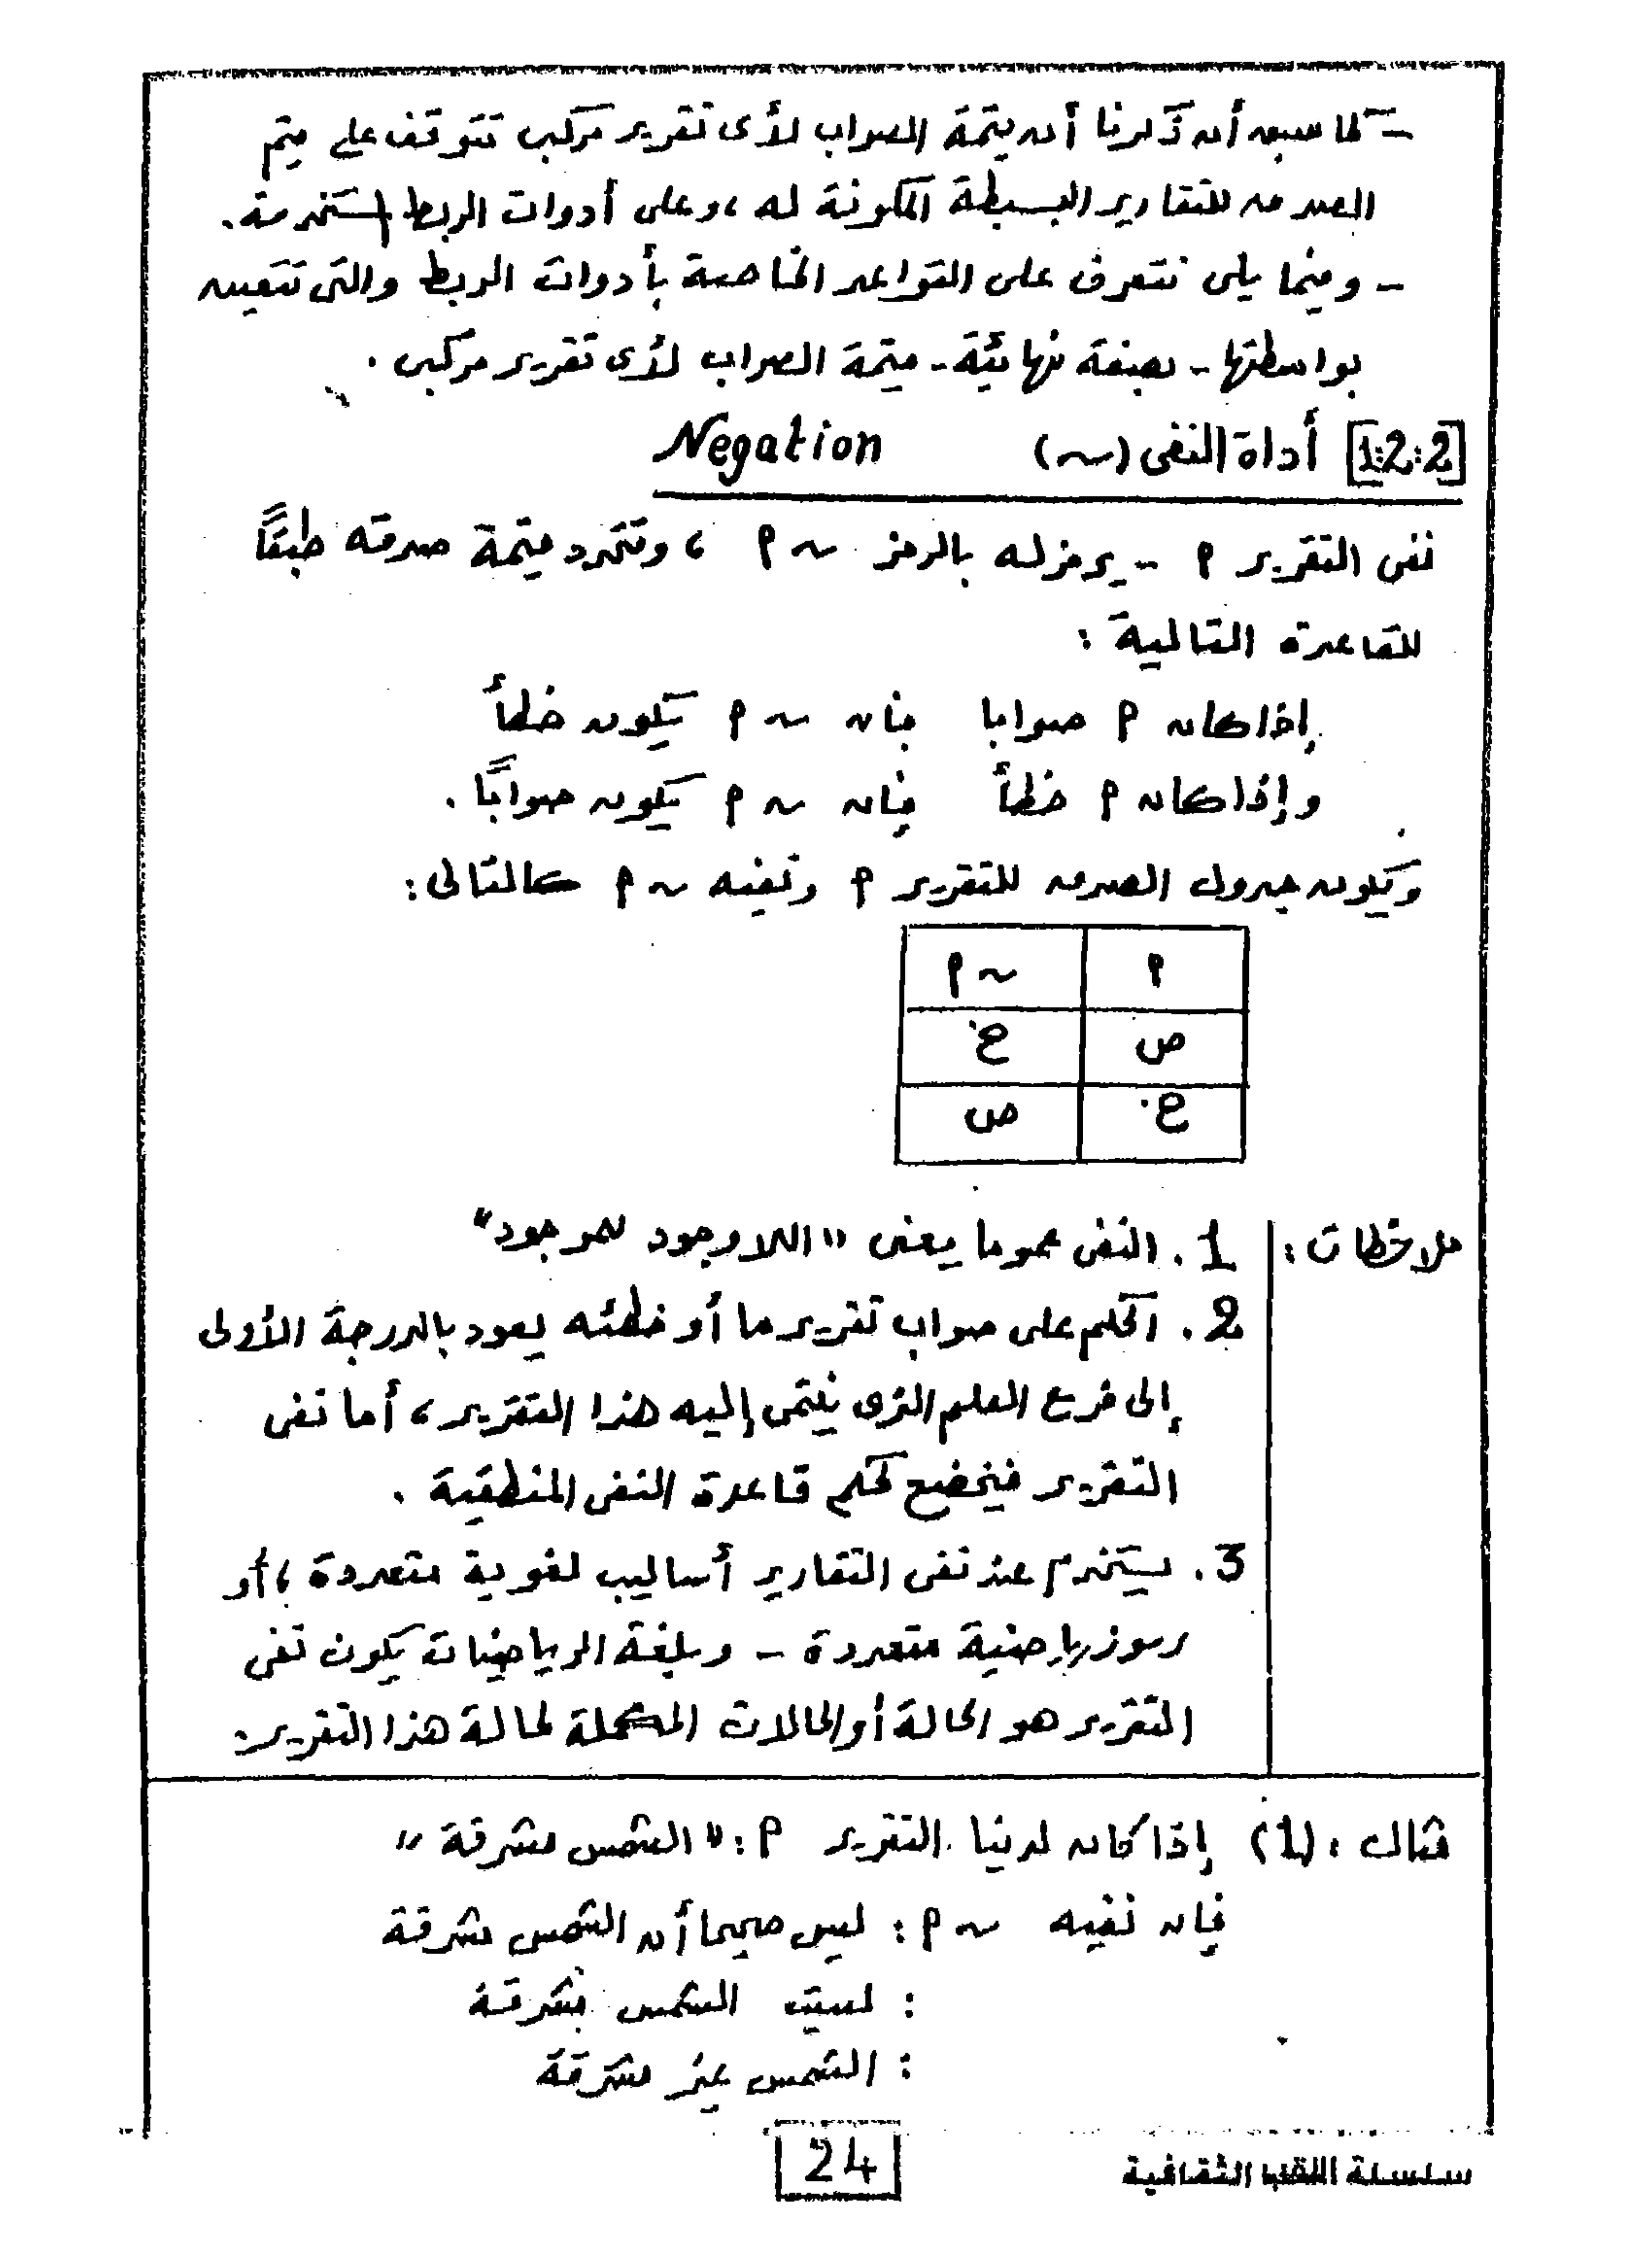 - كما سبق أن ذكرنا أن قيمة الصواب لأى تقرير مركب تتوقف على قيم
الصدق للتقارير البسيطة المكونة له ، وعلى أدوات الربط المستخدمة .
- وفيما يلى نتعرف على القواعد الخاصة بأدوات الربط والتى تتعين
بواسطتها - بصفة نهائية - قيمة الصواب لأى تقرير مركب .
[1:2:2] أداة النفى (~) Negation
نفى التقرير م - يرمز له بالرمز ~ م ، وتتحدد قيمة صدقه طبقًا
للقاعدة التالية :
إذا كان م صوابا فإن ~ م يكون خطأ
وإذا كان م خطأ فإن ~ م يكون صوابًا .
ويكون جدول الصدق للتقرير م ونفيه ~ م كالتالى :
م ~ م
ص خ
خ ص
ملاحظات : 1 . النفى عموما يعنى " اللاوجود للموجود "
2 . الحكم على صواب تقرير ما أو خطئه يعود بالدرجة الأولى
إلى فرع العلم الذى ينتمى إليه هذا التقرير ، أما نفى
التقرير فيخضع لحكم قاعدة النفى المنطقية .
3 . يستخدم عند نفى التقارير أساليب لغوية متعددة ، أو
رموز رياضية متعددة - وبلغة الرياضيات يكون نفى
التقرير هو الحالة أو الحالات المكملة لحالة هذا التقرير .
مثال : (1) إذا كان لدينا التقرير م : " الشمس مشرقة "
فإن نفيه ~ م : ليس صحيحا أن الشمس مشرقة
: ليست الشمس بمشرقة
: الشمس غير مشرقة
24
سلسلة اللقب الثقافية